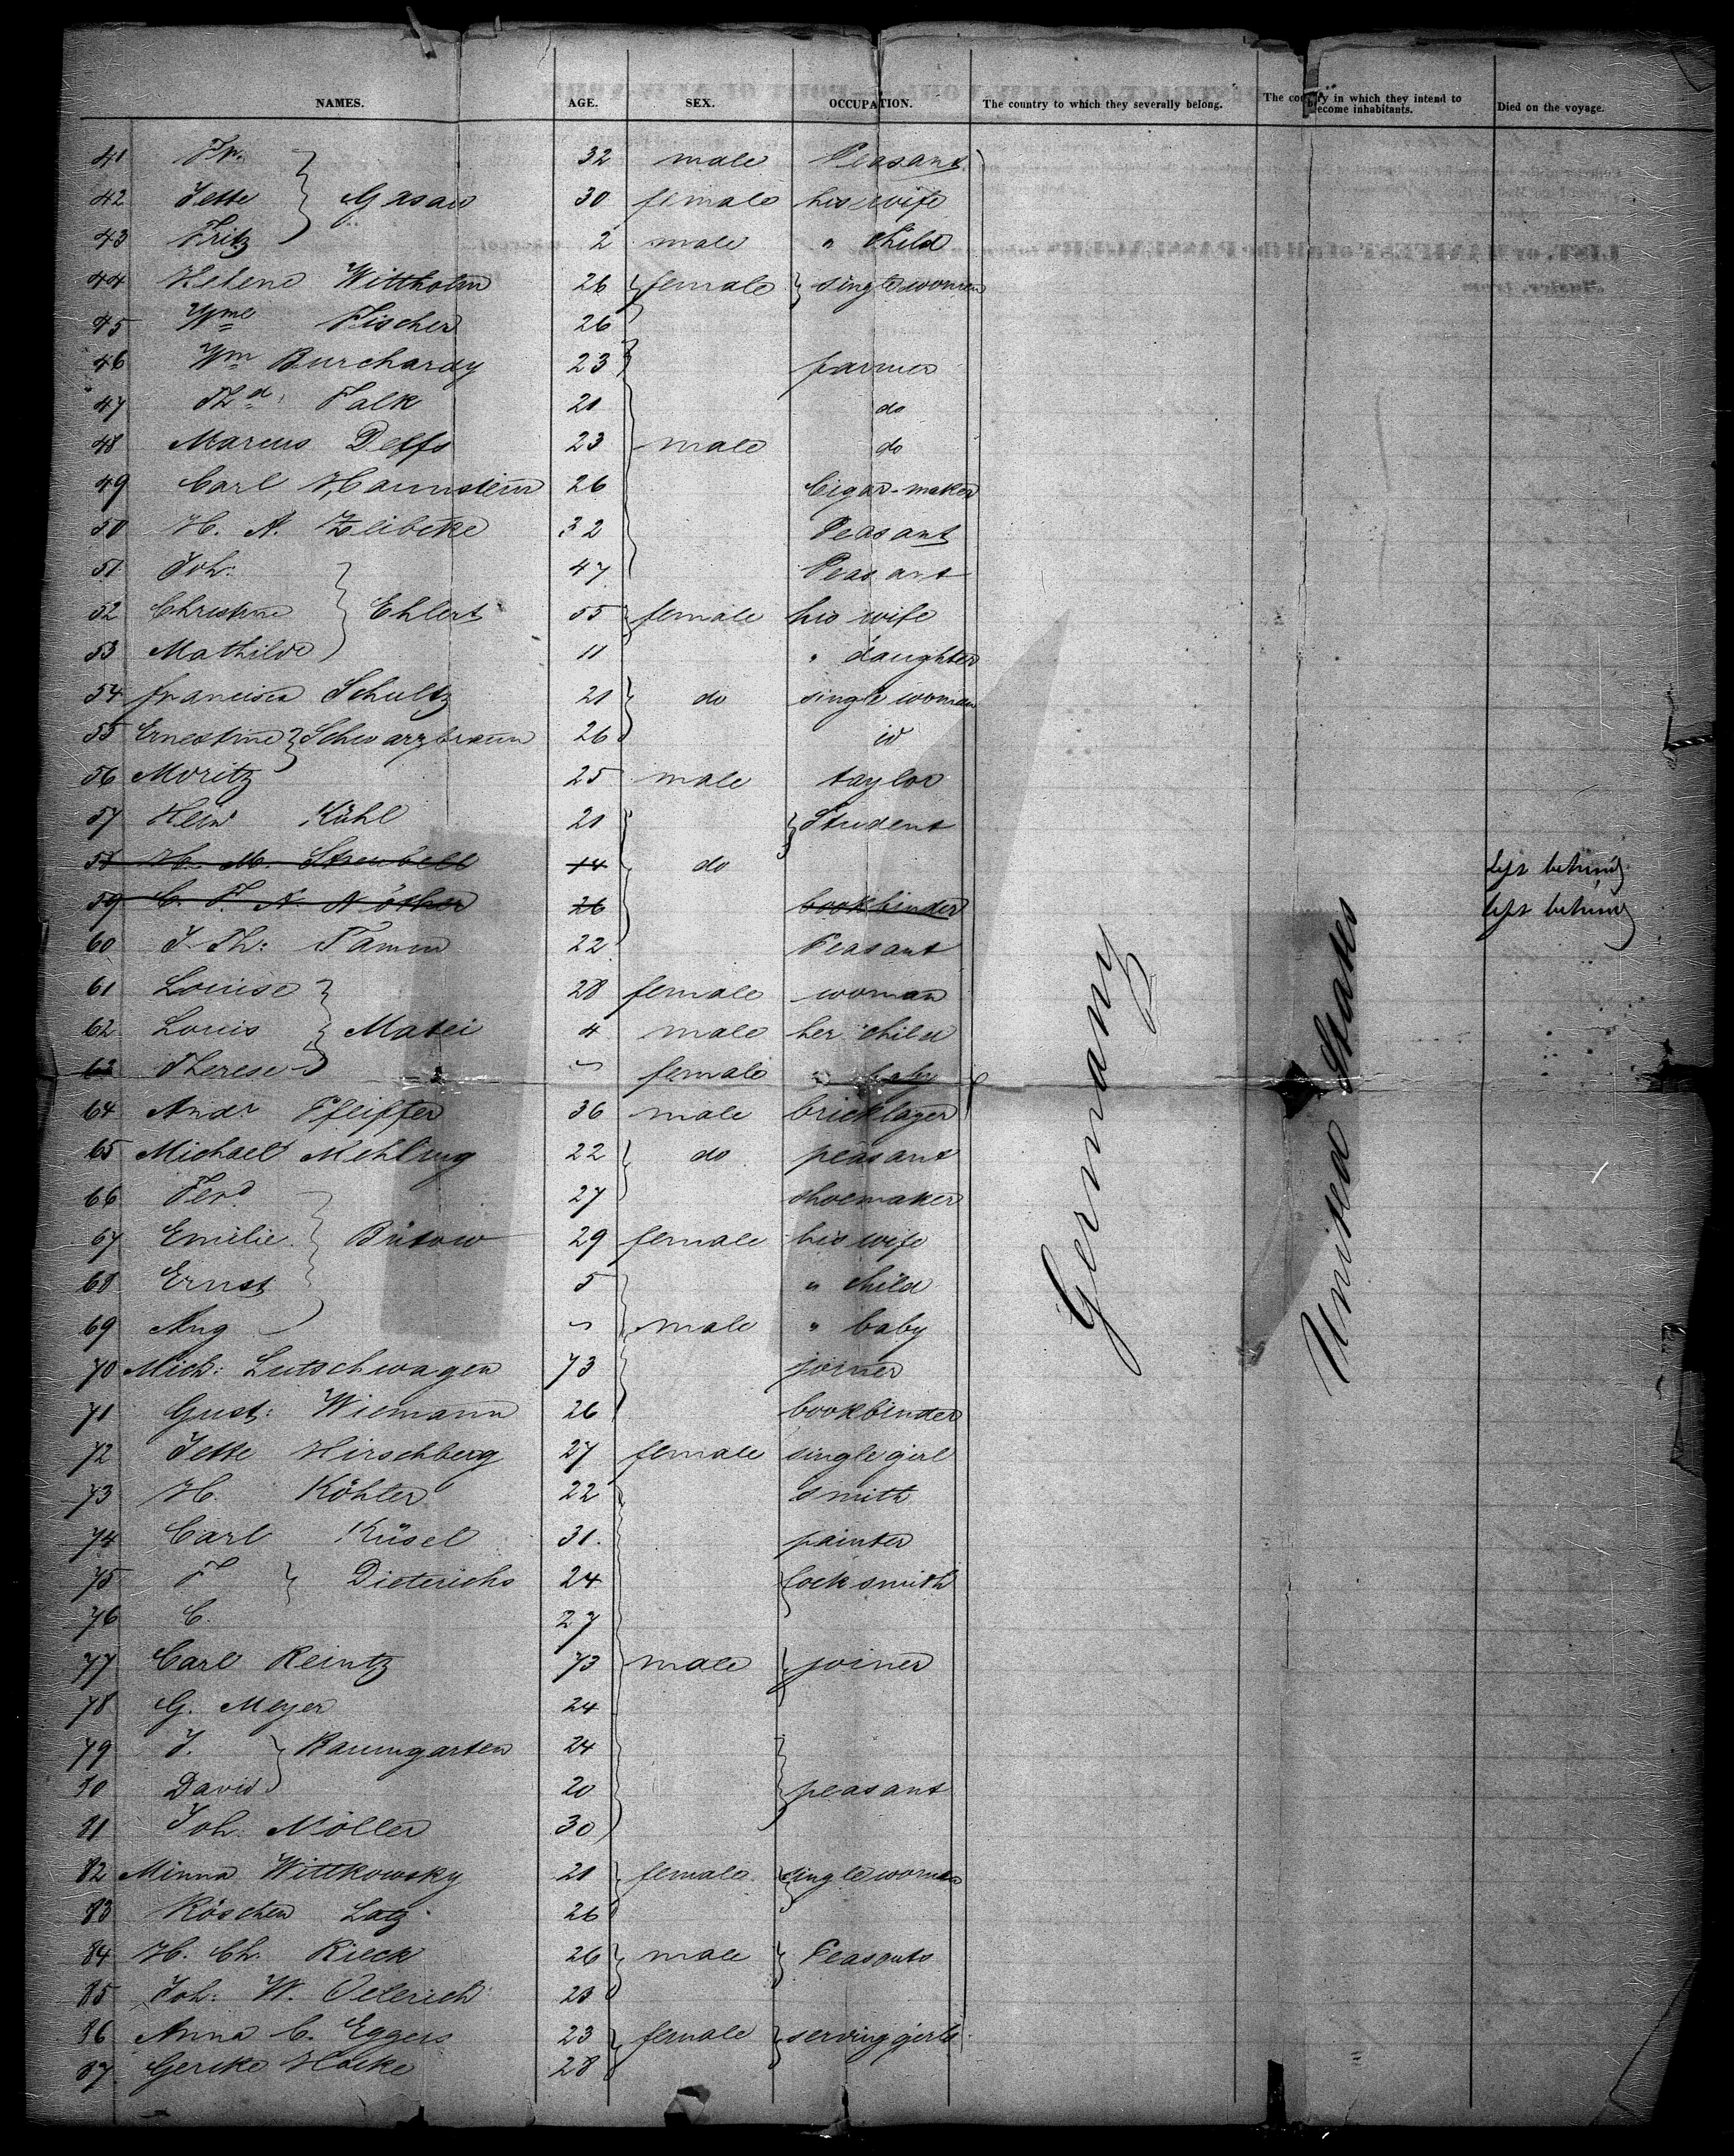 NAMES. AGE. SEX. OCCUPATION. The country to which they severally belong. The country in which they intend to become inhabitants. Died on the voyage.
41 Fr. 32 male Peasant
42 Jette Gasau 30 female his wife
43 Fritz 2 male " child
44 Helene Wittholm 26 female single women
45 Wme Fischer 26
46 Wm Burchardy 23 farmer
47 Thd Falk 21 do
48 Marcus Deffs 23 male do
49 Carl Haunstein 26 Cigar-maker
50 H. A. Zeibcke 32 Peasant
51 Joh: 47 Peasant
52 Christine Ehlert 55 female his wife
53 Mathilde 11 " daughter
54 Francisca Schultz 21 do single woman
55 Ernestine Schwarzbraun 26 id
56 Moritz 25 male taylor
57 Kühl 21 Student
58 H. M. 14 do left behind
59 C. F. A. Nöther 26 bookbinder left behind
60 J. Th: Tamm 22 Peasant
61 Louise 28 female woman
62 Louis Matei 4 male her child
63 Therese female baby
64 Andr Pfeiffer 36 male bricklayer
65 Michael Mehling 22 do peasant
66 Ferd 27 shoemaker
67 Emilie Bütow 29 female his wife
68 Ernst 5 " child
69 Aug male " baby
70 Mich: Lutschwagen 73 joiner
71 Gust: Wiemann 26 bookbinder
72 Jette Hirschberg 27 female single girl
73 H. Köhler 22 smith
74 CarlKüsel 31. painter
75 F Dieterichs 24 locksmith
76 C. 27
77 Carl Reintz 73 male joiner
78 G. Meyer 24
79 J. Baumgarten 24
80 David 20 peasant
81 Joh. Möller 30
82 Minna Wittkowsky 21 female single woman
83 Röschen Latz 26
84 H. Ch. Rieck 26 male Peasants
85 Joh: W. Oelerich 21
86 Anna C. Eggers 23 female serving girls
87. Gerike Hacke 28
Germany
United States